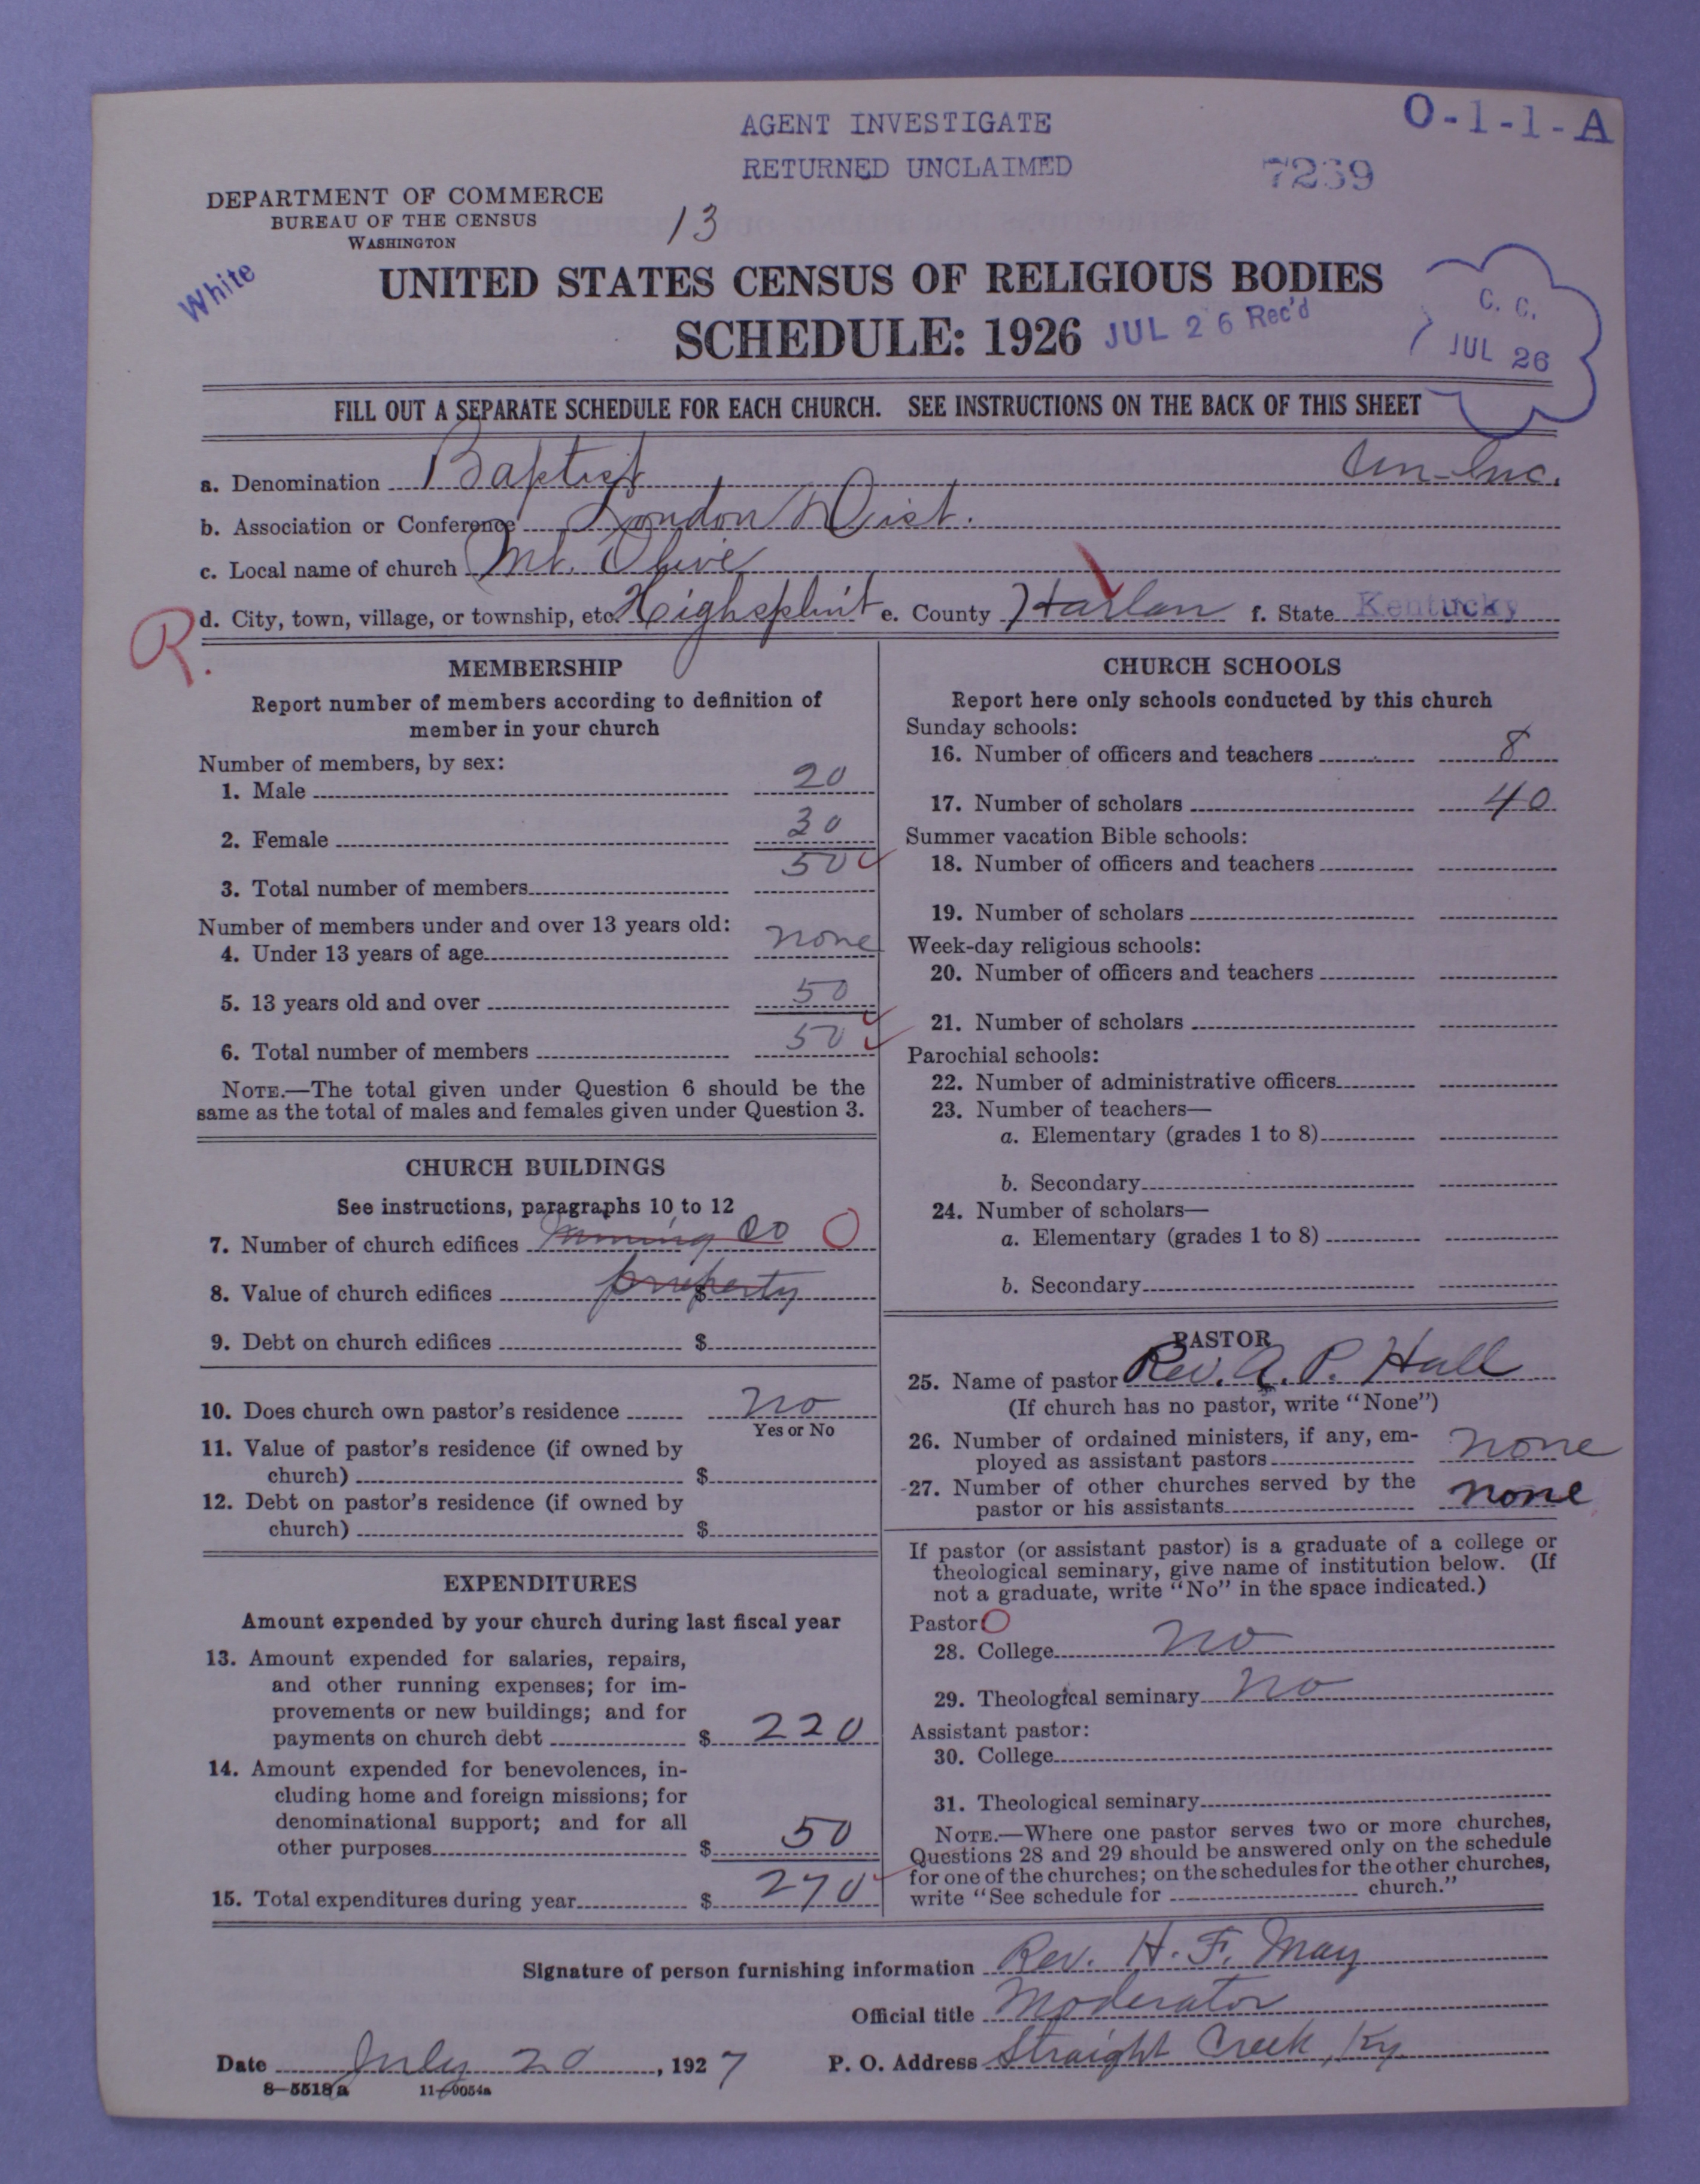 AGENT INVESTIGATE
RETURNED UNCLAIMED
O-1-1-A
7239
DEPARTMENT OF COMMERCE
BUREAU OF THE CENSUS
WASHINGTON
13
White
UNITED STATES CENSUS OF RELIGIOUS BODIES
SCHEDULE: 1926
JUL 26 Rec'd
C. C.
JUL 26
FILL OUT A SEPARATE SCHEDULE FOR EACH CHURCH. SEE INSTRUCTIONS ON THE BACK OF THIS SHEET
a. Denomination Baptist Un-Inc.
b. Association or Conference London Dist.
c. Local name of church Mt. Olive
R.
d. City, town, village, or township, etc. Highsplint e. County Harlan f. State Kentucky
MEMBERSHIP
Report number of members according to definition of
member in your church
Number of members, by sex:
1. Male 20
2. Female 30
3. Total number of members 50
Number of members under and over 13 years old:
4. Under 13 years of age none
5. 13 years old and over 50
6. Total number of members 50
NOTE.—The total given under Question 6 should be the
same as the total of males and females given under Question 3.
CHURCH BUILDINGS
See instructions, paragraphs 10 to 12
7. Number of church edifices mining Co O
8. Value of church edifices $ property
9. Debt on church edifices $
10. Does church own pastor's residence no
Yes or No
11. Value of pastor's residence (if owned by
church) $
12. Debt on pastor's residence (if owned by
church) $
EXPENDITURES
Amount expended by your church during last fiscal year
13. Amount expended for salaries, repairs,
and other running expenses; for im-
provements or new buildings; and for
payments on church debt $ 220
14. Amount expended for benevolences, in-
cluding home and foreign missions; for
denominational support; and for all
other purposes $ 50
15. Total expenditures during year $ 270
CHURCH SCHOOLS
Report here only schools conducted by this church
Sunday schools:
16. Number of officers and teachers 8
17. Number of scholars 40
Summer vacation Bible schools:
18. Number of officers and teachers
19. Number of scholars
Week-day religious schools:
20. Number of officers and teachers
21. Number of scholars
Parochial schools:
22. Number of administrative officers
23. Number of teachers—
a. Elementary (grades 1 to 8)
b. Secondary
24. Number of scholars—
a. Elementary (grades 1 to 8)
b. Secondary
PASTOR
25. Name of pastor Rev. A. P. Hall
(If church has no pastor, write "None")
26. Number of ordained ministers, if any, em-
ployed as assistant pastors none
27. Number of other churches served by the
pastor or his assistants none
If pastor (or assistant pastor) is a graduate of a college or
theological seminary, give name of institution below. (If
not a graduate, write "No" in the space indicated.)
Pastor: O
28. College no
29. Theological seminary no
Assistant pastor:
30. College
31. Theological seminary
NOTE.—Where one pastor serves two or more churches,
Questions 28 and 29 should be answered only on the schedule
for one of the churches; on the schedules for the other churches,
write "See schedule for church."
Signature of person furnishing information Rev. H. F. May
Official title Moderator
Date July 20, 1927 P. O. Address Straight Creek, Ky.
8—5518a 11—9054a